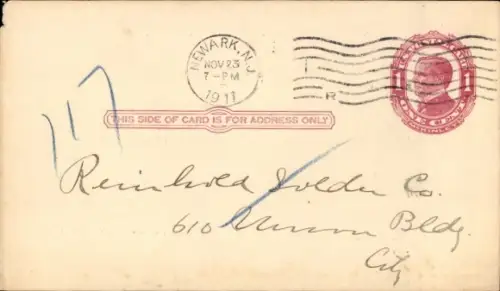 NEWARK, N.J.
NOV 23
7-PM
1911
R
1 1
THIS SIDE OF CARD IS FOR ADDRESS ONLY
117
Reinhold Solder Co.
610 Union Bldg.
City